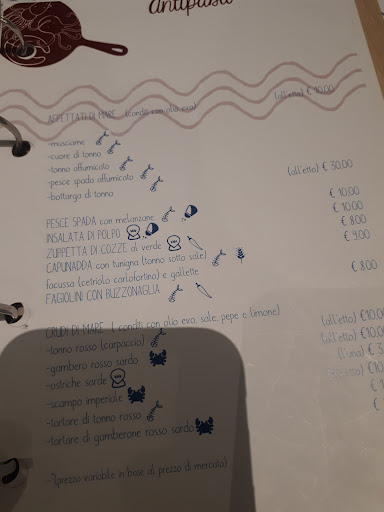 Antipasti
AFFETTATI DI MARE (conditi con olio evo) (all'etto) € 10.00
-musciame
-cuore di tonno
-tonno affumicato
-pesce spada affumicato (all'etto) € 30.00
-bottarga di tonno
PESCE SPADA con melanzane € 10.00
INSALATA DI POLPO € 10.00
ZUPPETTA DI COZZE al verde € 8.00
CAPUNADDA con tunigna (tonno sotto sale) € 9.00
facussa (cetriolo carlofortino) e gallette
FAGIOLINI CON BUZZONAGLIA € 8.00
CRUDI DI MARE ( conditi con olio evo, sale, pepe e limone)
-tonno rosso (carpaccio) (all'etto) €10.0
-gambero rosso sardo (all'etto) €10.
-ostriche sarde (l'una) € 3.
-scampo imperiale (all'etto) €10
-tartare di tonno rosso
-tartare di gamberone rosso sardo
-(prezzo variabile in base al prezzo di mercato)